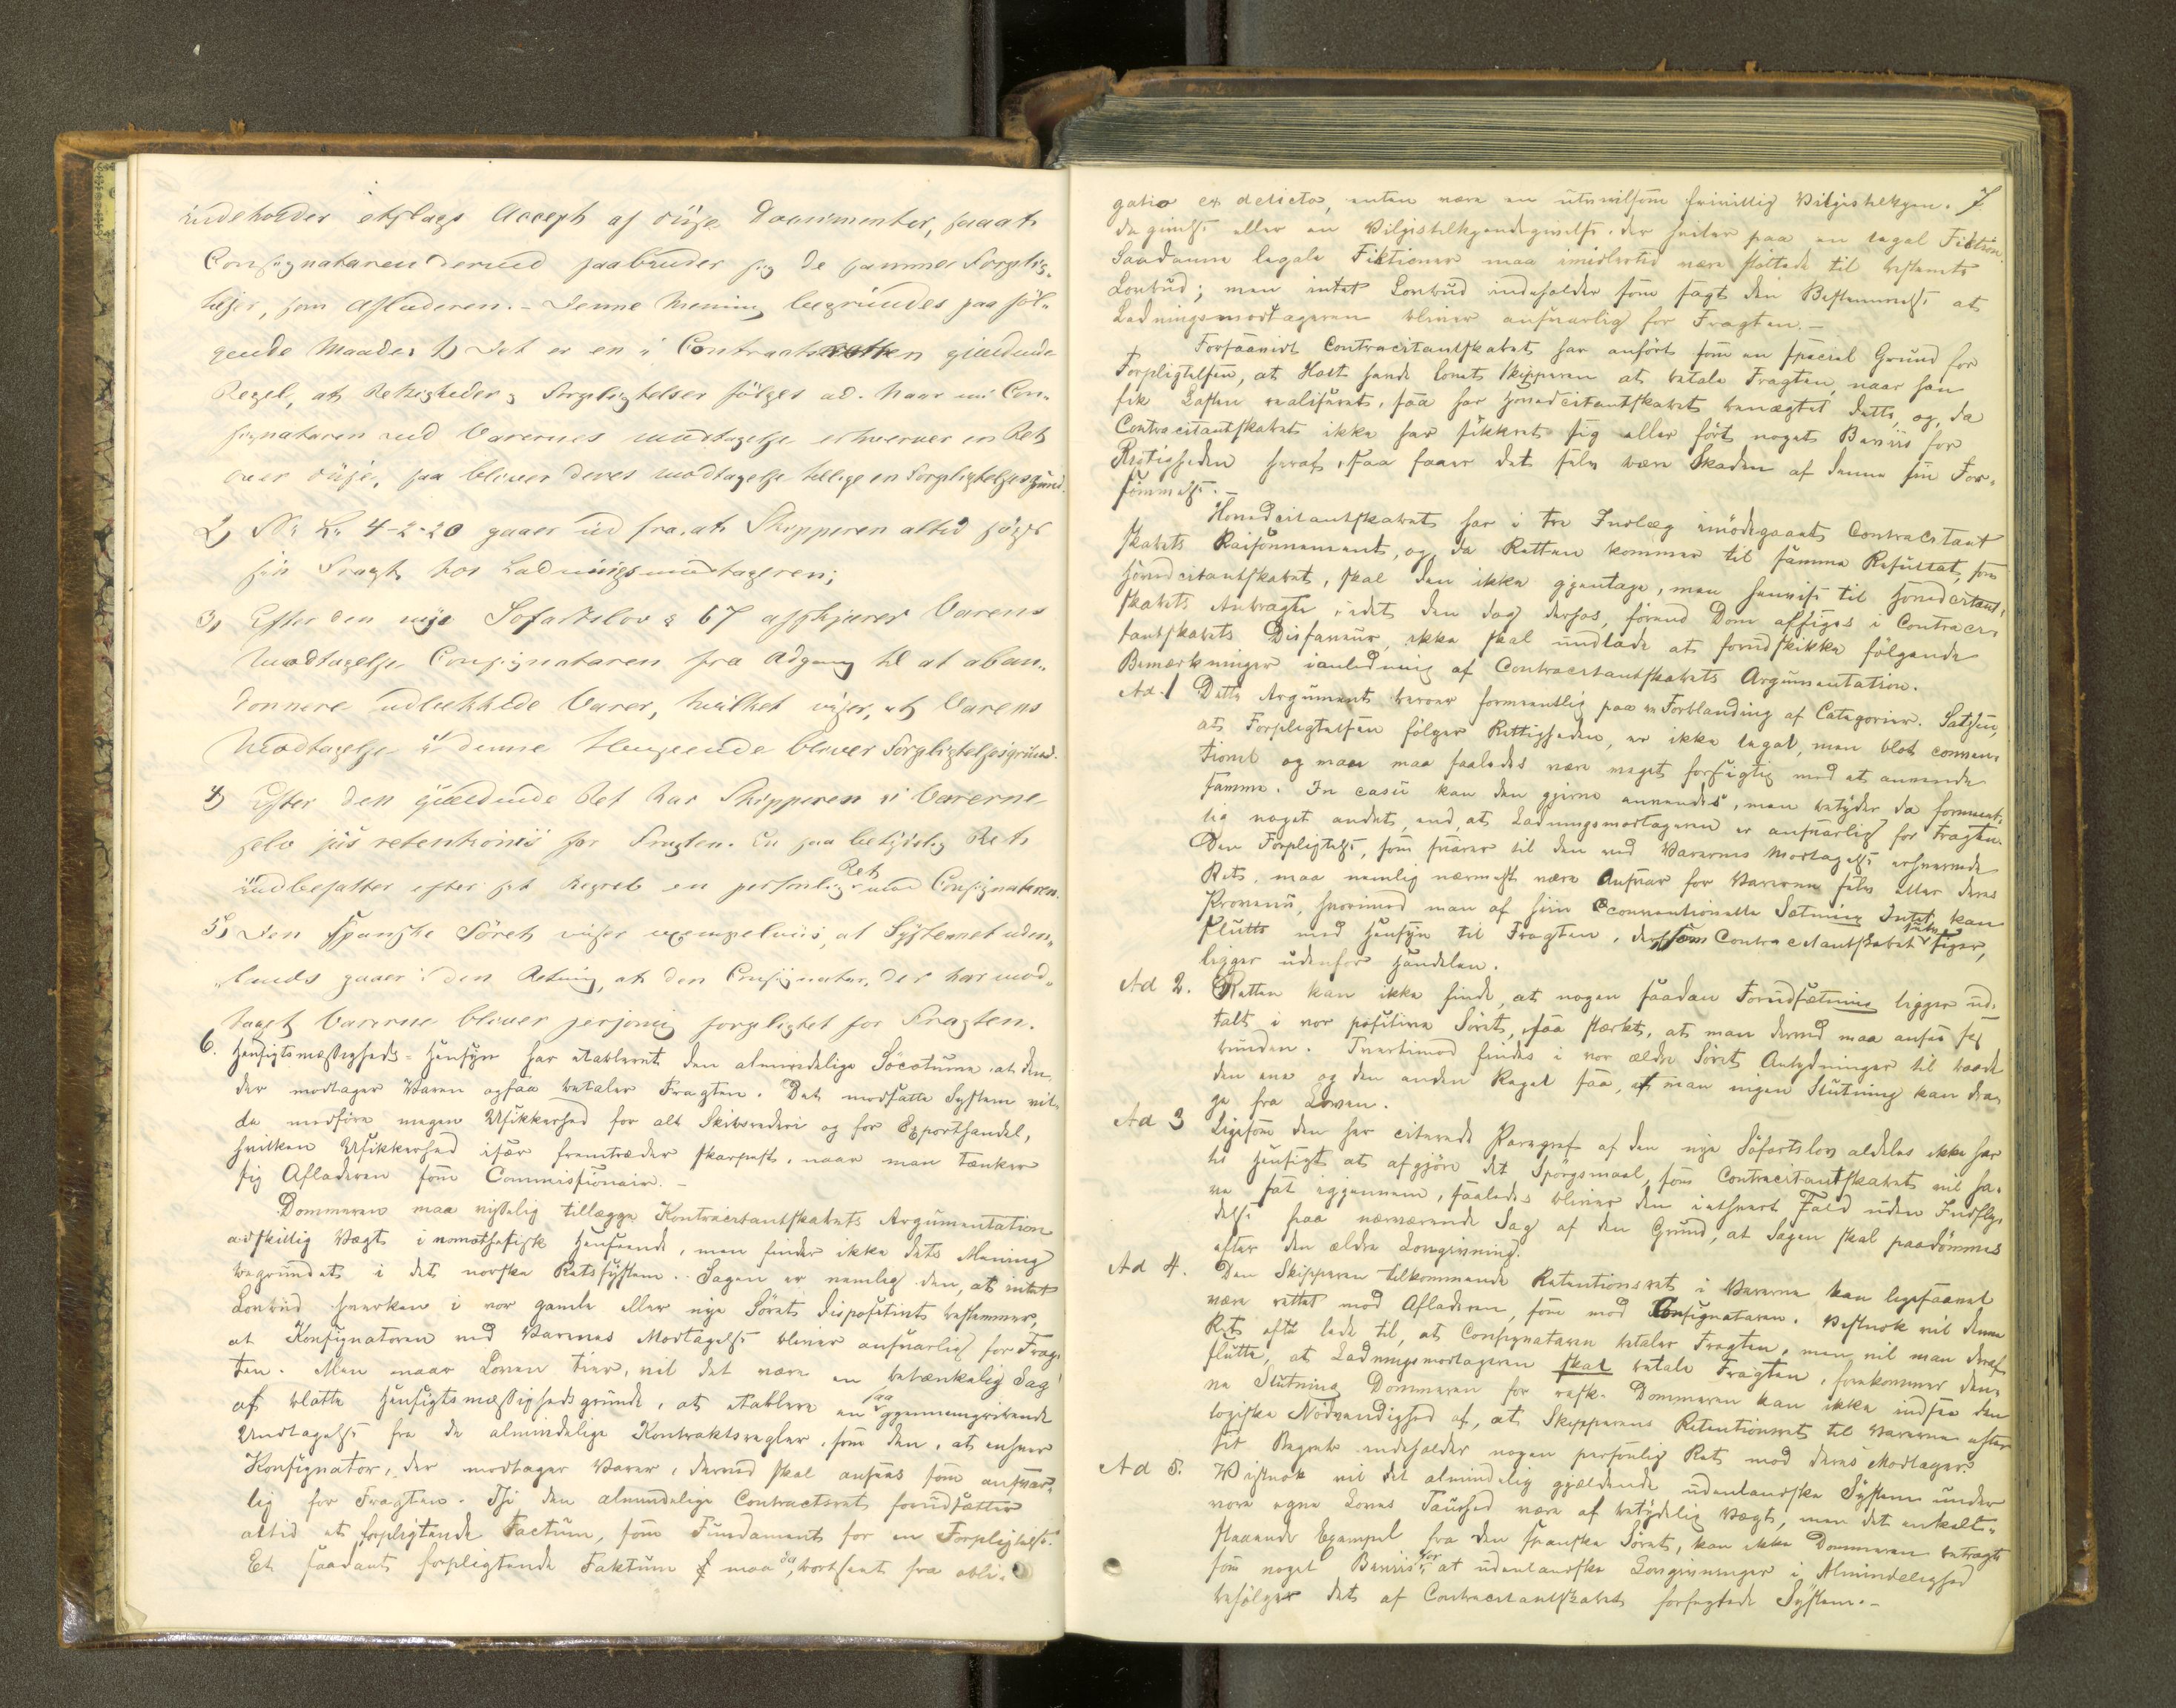 indeholder etslags Accept af disse Documenter, saaat
Consignataren derved paabyrder sig de samme Forplig-
telser, som Afladeren. - Denne Mening begrundes paa föl-
gende Maade: 1) Det er en i Contractsretten gjældende
Regel, at Rettigheder og Forpligtelser fölges ad. Naar nu Con-
signataren ved Varernes Modtagelse erhverver en Ret
over disse, saa bliver deres Modtagelse tillige en Forpligtelsesgrund.
2) N. L. 4-2-20 gaaer ud fra, at Skipperen altid söger
sin Fragt hos Ladningsmodtageren;
3) Efter den nye Söfartslov § 67 afskjærer Varens
Modtagelse Consignataren fra Adgang til at aban-
donnere udlækkede Varer, hvilket viser, at Varens
Modtagelse i denne Henseende bliver Forpligtelsesgrund.
4) Efter den gjældende Ret har Skipperen i Varerne
selv jus retentionis for Fragten. En saa betydelig Ret
indbefatter efter sit Begreb en personlig Ret mod Consignataren.
5) Den Spanske Söret viser exempelviis, at Systemet uden-
lands gaaer i den Retning, at den Consignatar, der har mod-
taget Varerne bliver personlig forpligtet for Fragten.
6. Hensigtsmæssigheds-Hensyn har etableret den almindelige Söcoutume, at den,
der modtager Varen ogsaa betaler Fragten. Det modsatte System vil-
de medföre megen Usikkerhed for alt Skibsrederi og for Exporthandel,
hvilken Usikkerhed især fremtræder skarpest, naar man tænker
sig Afladeren som Commissionair. -
Dommeren maa vistelig tillægge Kontracitantskabets Argumentation
adskillig Vægt i nomothetisk Henseende, men finder ikke dets Mening
begrundet i det norske Retssystem. Sagen er nemlig den, at intet
Lovbud hverken i vor gamle eller nye Söret dispositivt bestemmer,
at Konsignatoren ved Varernes Modtagelse bliver ansvarlig for Frag-
ten. Men naar Loven tier, vil det være en betænkelig Sag
af blotte Hensigtsmæssighedsgrunde, at etablere en saa gjennemgribende
Undtagelse fra de almindelige Kontraktsregler, som den, at enhver
Konsignator, der modtager Varer, derved skal ansees som ansvar-
lig for Fragten. Thi den almindelige Contractsret forudsætter
altid et forpligtende Factum, som Fundament for en Forpligtelse.
Et saadant forpligtende Faktum maa da, bortseet fra obli-
7
gatio ex delicto, enten være en utvivlsom frivillig Viljestilkjen-
degivelse eller en Viljestilkjendegivelse, der hviler paa en legal Fiktion.
Saadanne legale Fiktioner maa imidlertid være stöttede til bestemte
Lovbud; men intet Lovbud indeholder som sagt den Bestemmelse at
Ladningsmodtageren bliver ansvarlig for Fragten. -
Forsaavidt Contracitantskabet har anfört som en special Grund for
Forpligtelsen, at Hart havde lovet Skipperen at betale Fragten, naar han
fik Lasten realiseret, saa har Hovedcitantskabet benægtet dette, og, da
Contracitantskabet ikke har sikkret sig eller fört noget Beviis for
Rigtigheden heraf, saa faaer det selv bære Skaden af denne sin For-
sömmelse. -
Hovedcitantskabet har i tre Indlæg imödegaaet Contracitant-
skabets Raisonnement, og, da Retten kommer til samme Resultat, som
Hovedcitantskabet, skal den ikke gjentage, men henvise til Hovedcitant-
skabets Anbragte, idet den dog derhos, forend Dom afsiges i Contraci-
tantskabets Disfaveur, ikke skal undlade at forudskikke fölgende
Bemærkninger i anledning af Contracitantskabets Argumentation.
Ad. 1 Dette Argument beroer formeentlig paa en Forblanding af Categorier. Satsen,
at Forpligtelsen fölger Rettigheden, er ikke legal, men blot conven-
tionel og man maa saaledes være meget forsigtig med at anvende
samme. In casu kan den gjerne anvendes, men betyder da forment-
lig noget andet, end, at Ladningsmodtageren er ansvarlig for Fragten.
Den Forpligtelse, som svarer til den ved Varernes Modtagelse erhvervede
Ret, maa nemlig nærmest være Ansvar for Varerne selv eller deres
Provenu, hvorimod man af hiin conventionelle Sætning Intet kan
slutte med Hensyn til Fragten, der, som Contracitantskabet selv siger,
ligger udenfor Handelen.
Ad 2. Retten kan ikke finde, at nogen saadan Forudsætning ligger ud-
talt i vor positive Söret, saa stærkt, at man derved maa ansee sig
bunden. Tvertimod findes i vor ældre Söret Antydninger til baade
den ene og den anden Regel saa, at man ingen Slutning kan dra-
ge fra Loven.
Ad 3 Ligesom den her citerede Paragraf af den nye Söfartslov aldeles ikke har
til Hensigt at afgjöre det Spörgsmaal, som Contracitantskabet vil ha-
ve sat igjennem, saaledes bliver den i ethvert Fald uden Indfly-
delse paa nærværende Sag af den Grund, at Sagen skal paadömmes
efter den ældre Lovgivning.
Ad 4. Den Skipperen tilkommende Retentionsret i Varerne kan ligesaavel
være rettet mod Afladeren, som mod Consignataren. Vistnok vil denne
Ret ofte lede til, at Consignataren betaler Fragten, men vil man deraf
slutte, at Ladningsmodtageren skal betale Fragten, forekommer den-
ne Slutning Dommeren for rask. Dommeren kan ikke indsee den
logiske Nödvendighed af, at Skipperens Retentionsret til Varerne efter
sit Begreb indeholder nogen personlig Ret mod deres Modtager.
Ad 5. Vistnok vil det almindelig gjældende udenlandske System under
vore egne Loves Taushed være af betydelig Vægt, men det enkelt-
staaende Exempel fra den spanske Söret, kan ikke Dommeren betragte
som noget Beviis for, at udenlandske Lovgivninger i Almindelighed
befölger det af Contracitantskabet forfegtede System. -